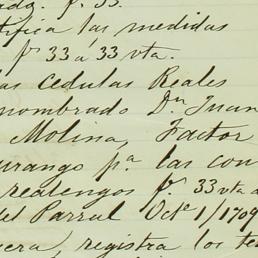 fº 33.
tifica las medidas
fº 33 a 33 vta.
as cedulas Reales
nombrado Dⁿ Juan
Molina, Factor
urango pª las con
realengos fº 33 vta a
del Parral Octe 1/1709
era, registra los te